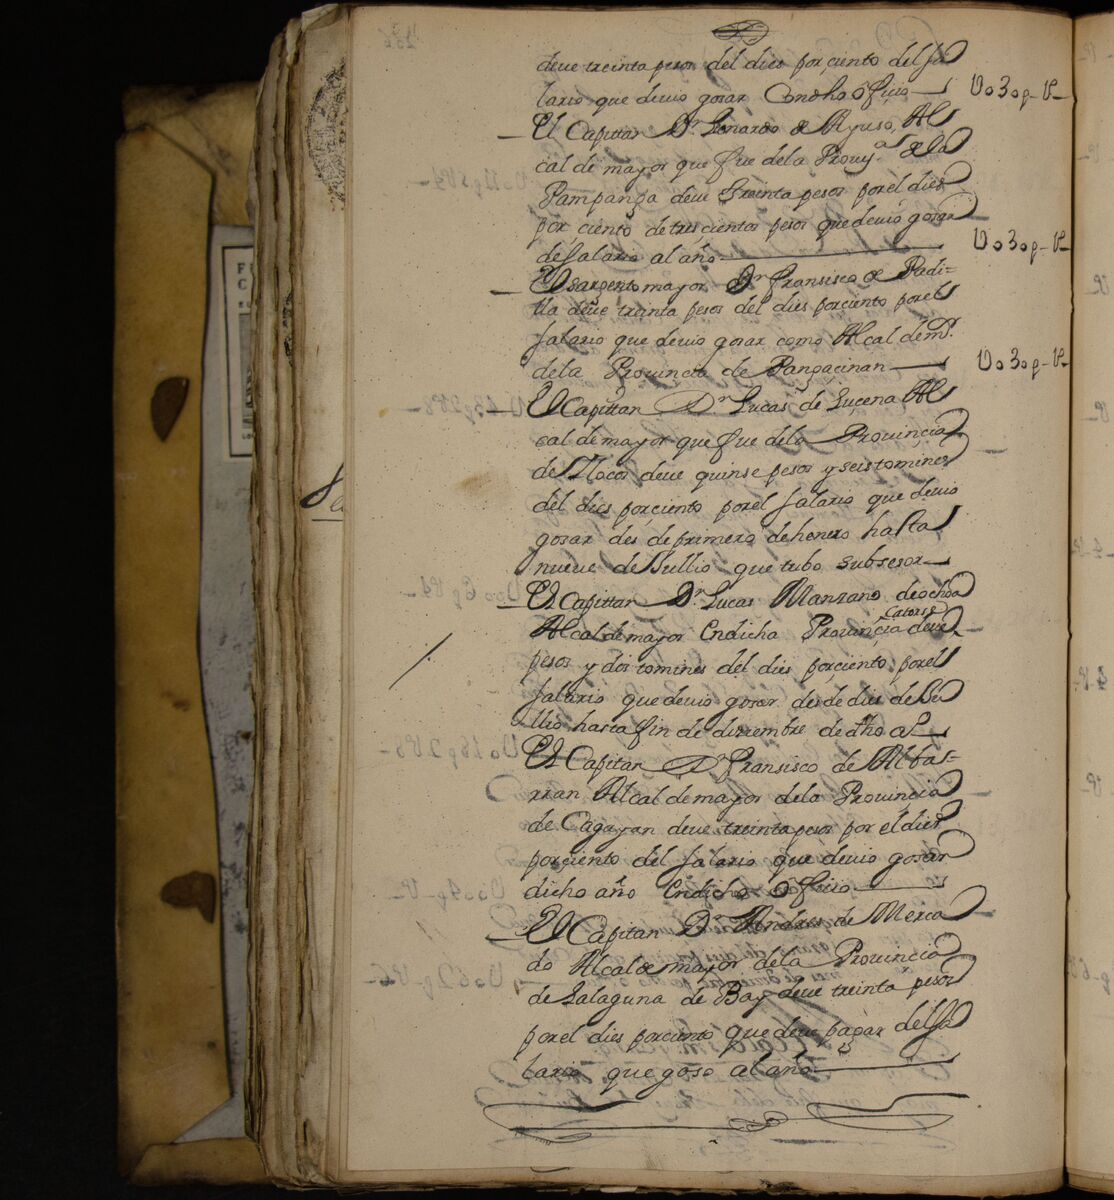 deve treinta pesos del dies por çiento del Sa
lario que devio gosar Con dho offiçio — U030p-U—
El Capittan Dn Leonardo de Ayuso, Al
cal de mayor que fue dela Provya de la
Pampanga deve treinta pesos por el dies
por ciento de tres cientos pesos que devio gosar
de salario al año — U030p-U—
El Sargento mayor Dn Fransisco de Padi=
lla deve treinta pesos del dies por ciento por el
Salario que devio gosar como Alcal de mr
dela Provincia de Pangaçinan — U030p-U—
El Capittan Dn Lucas de Lucena Al
cal de mayor que fue dela Provincia
de Yllocos deve quinse pesos y seis tomines
del dies por ciento por el salario que devio
gosar des de primero de henero hasta
nueve de Jullio que tubo subsesor —
El Capittan Dn Lucas Manzano de ochoa
Alcal de mayor En dicha Provincia deve Catorse
pesos y dos tomines del dies por ciento por el
Salario que devio gosar desde dies de Ju
llio hasta fin de disiembre de dho aº —
El Capitan Dn Fransisco de Albar=
rran Alcal de mayor dela Provincia
de Cagayan deve treinta pesos por el dies
por ciento del salario que devio gosar
dicho año En dicho offiçio —
El Capitan Dn Andres de Merca
do Alcal de mayor dela Provincia
de La laguna de Bay deve treinta pesos
por el dies por ciento que deve pagar del Sa
lario que goso al año —